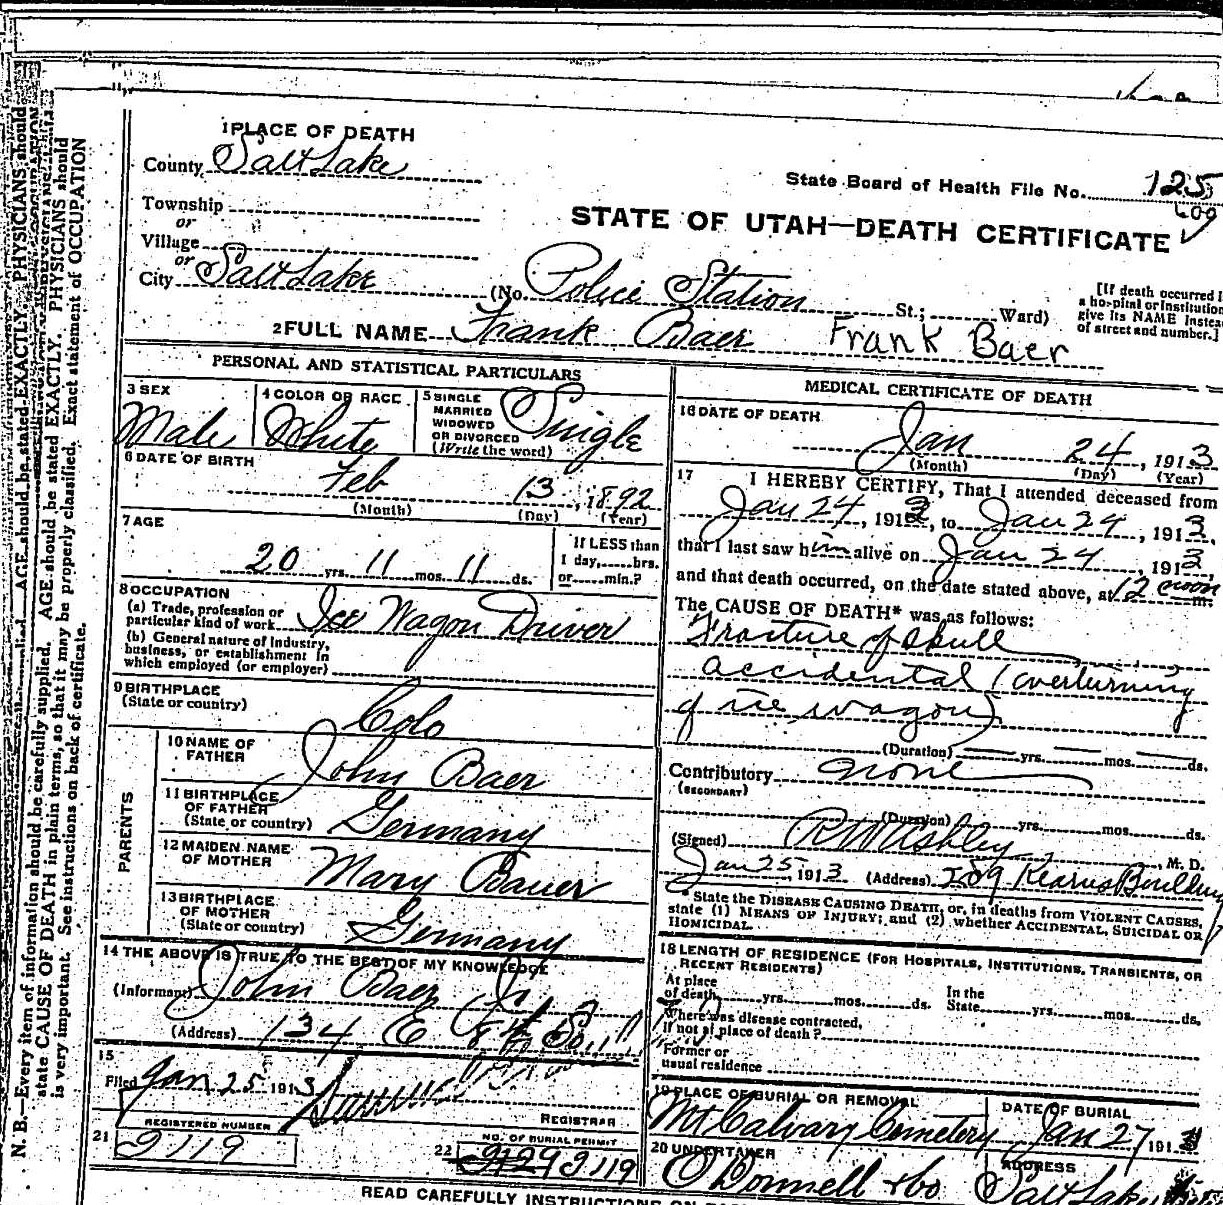 1 PLACE OF DEATH
County Salt Lake
State Board of Health File No. 125
Township
or
Village
or
City Salt Lake
STATE OF UTAH—DEATH CERTIFICATE
(No. Police Station St.; Ward)
[If death occurred
a hospital or Institution
give its NAME instead
of street and number.]
2 FULL NAME Frank Baer Frank Baer
PERSONAL AND STATISTICAL PARTICULARS
3 SEX
Male
4 COLOR OR RACE
White
5 SINGLE
MARRIED
WIDOWED
OR DIVORCED
(Write the word)
Single
6 DATE OF BIRTH
Feb 13, 1892
(Month) (Day) (Year)
7 AGE
20 yrs. 11 mos. 11 ds.
If LESS than
1 day, hrs.
or min.?
8 OCCUPATION
(a) Trade, profession or
particular kind of work Ice Wagon Driver
(b) General nature of Industry,
business, or establishment in
which employed (or employer)
9 BIRTHPLACE
(State or country)
Colo
PARENTS
10 NAME OF
FATHER
John Baer
11 BIRTHPLACE
OF FATHER
(State or country)
Germany
12 MAIDEN NAME
OF MOTHER
Mary Bauer
13 BIRTHPLACE
OF MOTHER
(State or country)
Germany
14 THE ABOVE IS TRUE TO THE BEST OF MY KNOWLEDGE
(Informant) John Baer Jr
(Address) 134 E 8th So.
15
Filed Jan 25 1913
REGISTRAR
21
REGISTERED NUMBER
2119
22
NO. OF BURIAL PERMIT
2129 2119
MEDICAL CERTIFICATE OF DEATH
16 DATE OF DEATH
Jan 24, 1913
(Month) (Day) (Year)
17 I HEREBY CERTIFY, That I attended deceased from
Jan 24, 1913, to Jan 24, 1913.
that I last saw him alive on Jan 24, 1913
and that death occurred, on the date stated above, at 12 noon m.
The CAUSE OF DEATH* was as follows:
Fracture of skull
accidental (overturning
of ice wagon)
(Duration) yrs. mos. ds.
Contributory none
(SECONDARY)
(Duration) yrs. mos. ds.
(Signed) R W Ashley, M. D.
Jan 25, 1913 (Address) 209 Kearns Building
*State the DISEASE CAUSING DEATH, or, in deaths from VIOLENT CAUSES,
state (1) MEANS OF INJURY; and (2) whether ACCIDENTAL, SUICIDAL OR
HOMICIDAL.
18 LENGTH OF RESIDENCE (FOR HOSPITALS, INSTITUTIONS, TRANSIENTS, OR
RECENT RESIDENTS)
At place
of death yrs. mos. ds.
In the
State yrs. mos. ds.
Where was disease contracted,
if not at place of death?
Former or
usual residence
19 PLACE OF BURIAL OR REMOVAL
Mt Calvary Cemetery
DATE OF BURIAL
Jan 27 191
20 UNDERTAKER
O Donnell & Co
ADDRESS
Salt Lake
READ CAREFULLY INSTRUCTIONS ON
N. B.—Every item of information should be carefully supplied. AGE should be stated EXACTLY. PHYSICIANS should
state CAUSE OF DEATH in plain terms, so that it may be properly classified. Exact statement of OCCUPATION
is very important. See instructions on back of certificate.